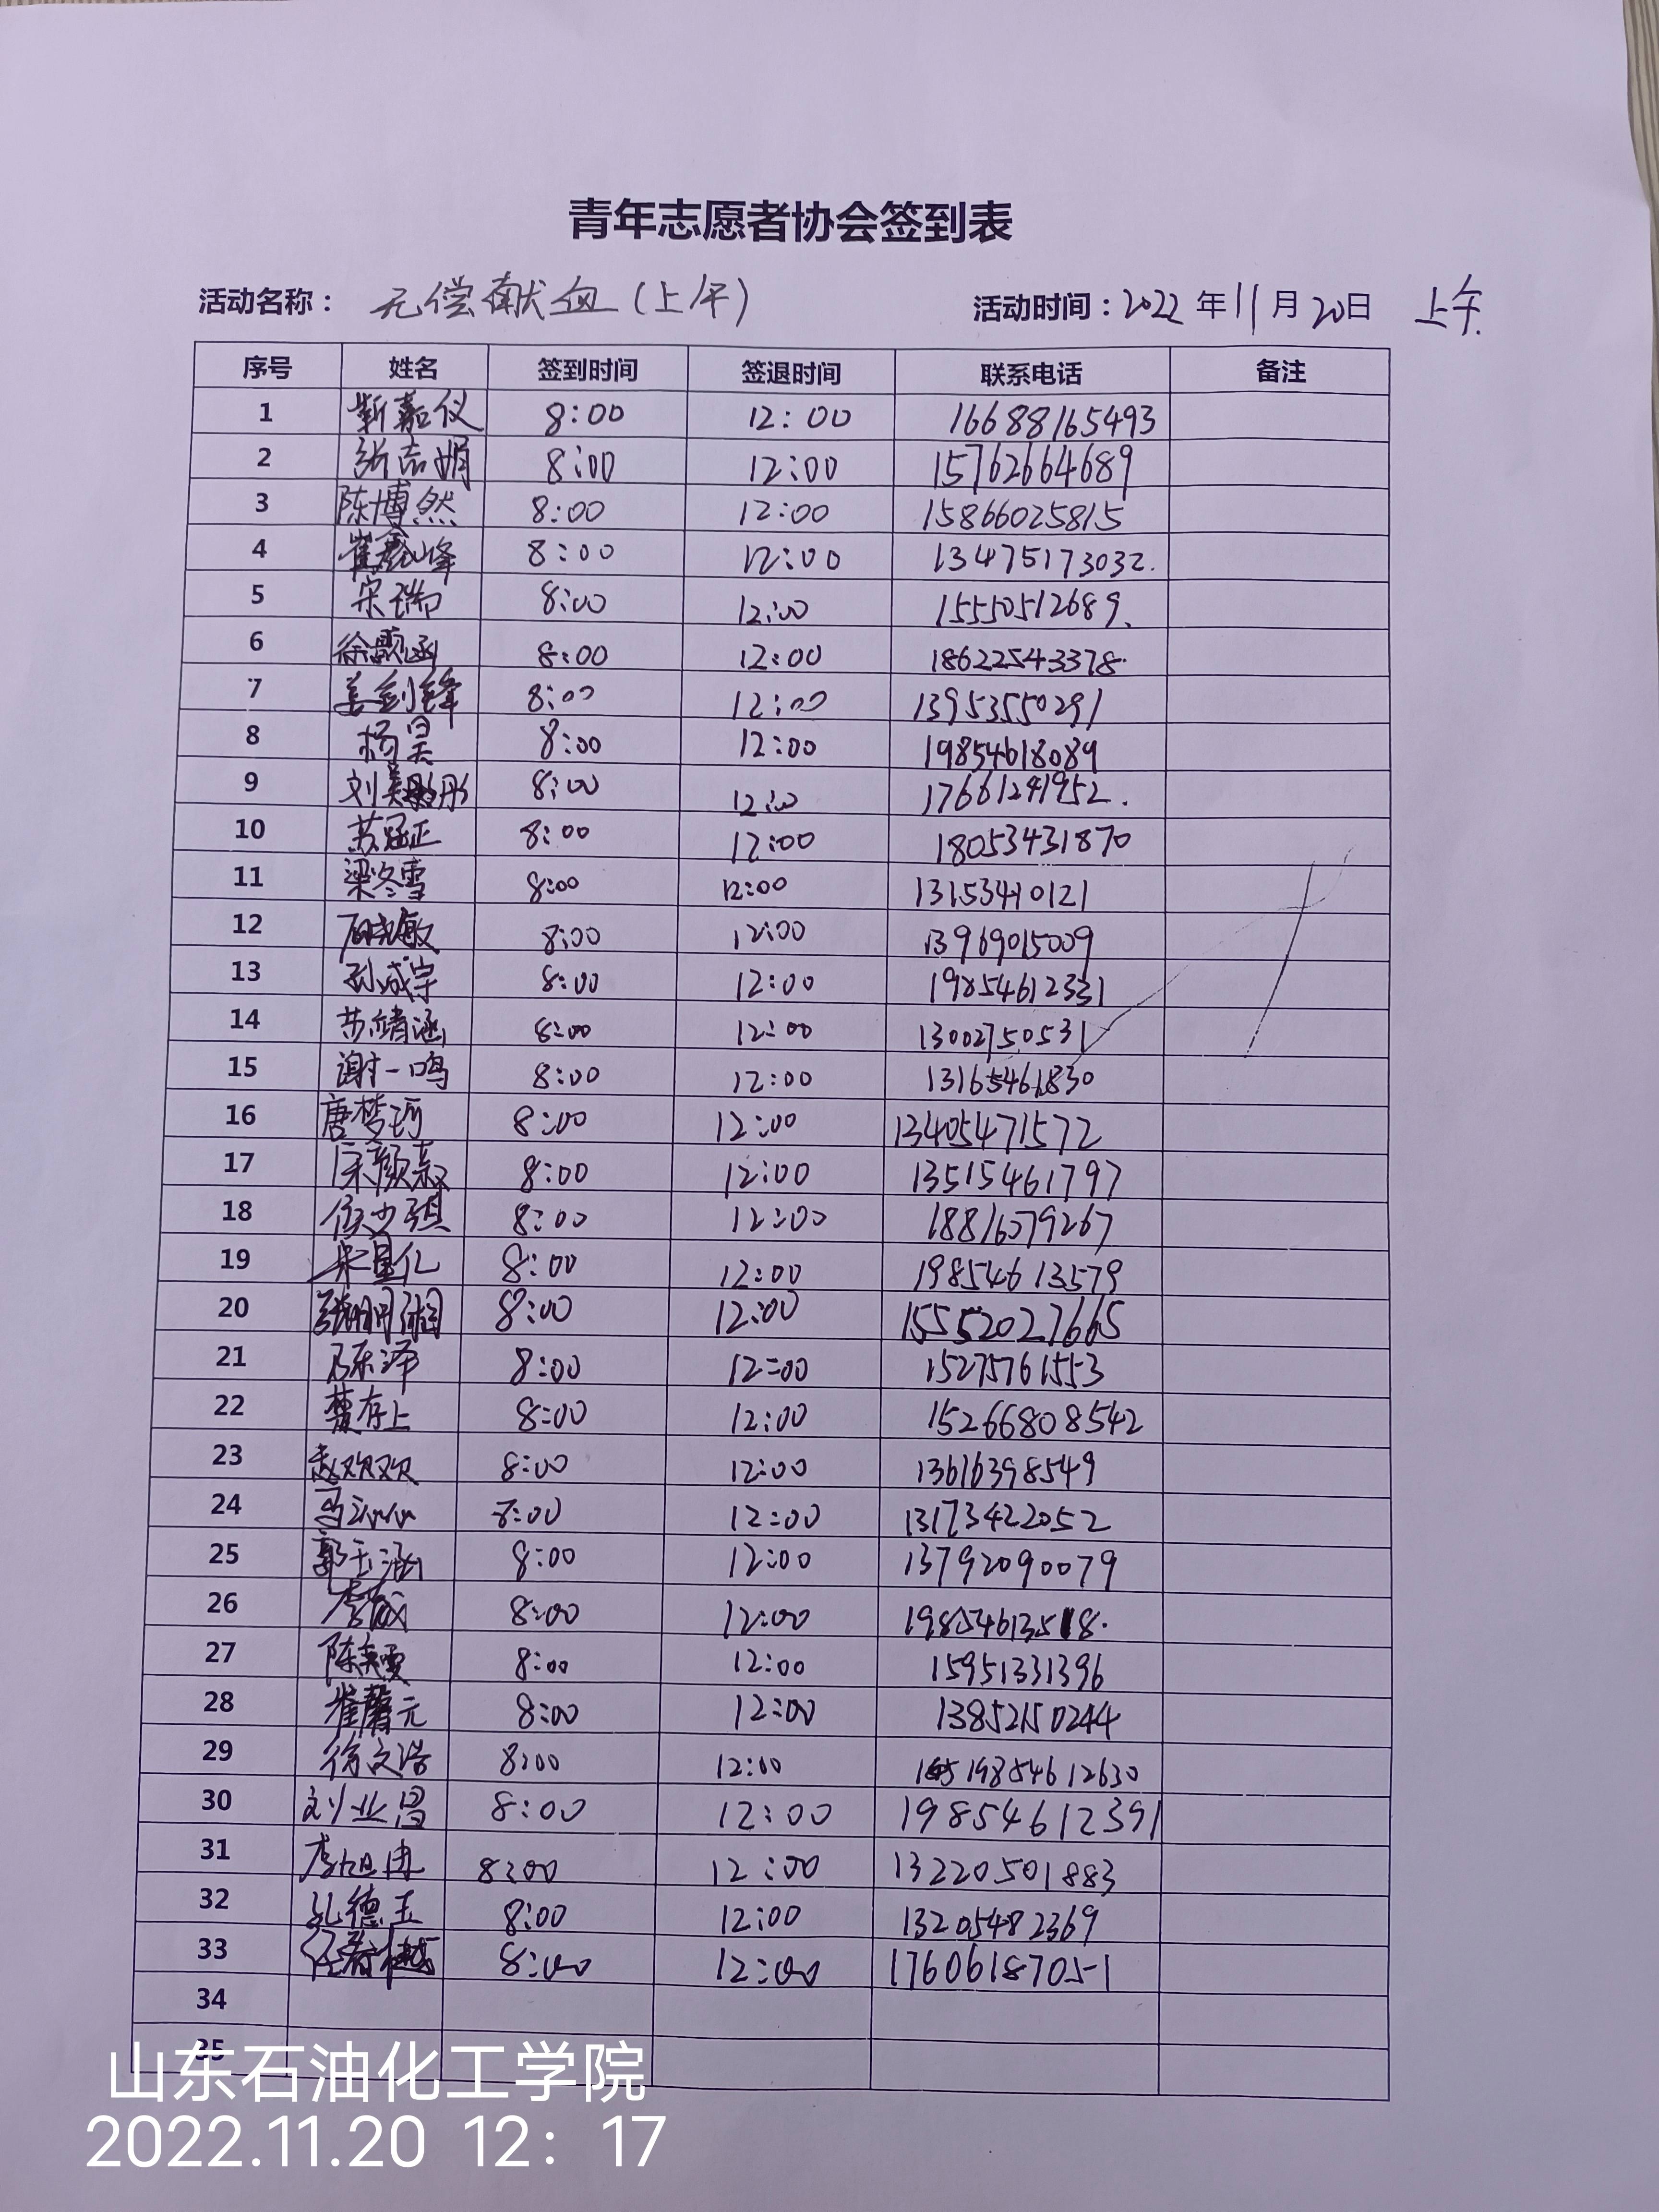 青年志愿者协会签到表
活动名称： 无偿献血（上午） 活动时间：2022 年 11 月 20日 上午.
序号 姓名 签到时间 签退时间 联系电话 备注
1 靳嘉仪 8:00 12:00 16688165493
2 8:00 12:00 15762664689
3 陈博然 8:00 12:00 15866025815
4 8:00 12:00 13475173032.
5 宋瑞 8:00 12:00 15550512689.
6 8:00 12:00 18622543378.
7 姜剑锋 8:00 12:00 13953550291
8 杨昊 8:00 12:00 19854618089
9 8:00 12:00 17661241952.
10 苏冠正 8:00 12:00 18053431870
11 梁冬雪 8:00 12:00 13153410121
12 8:00 12:00 13969015009
13 孙成宗 8:00 12:00 19854612331
14 苏靖涵 8:00 12:00 13002750531
15 谢一鸣 8:00 12:00 13165461830
16 唐梦珂 8:00 12:00 13405471572
17 8:00 12:00 13515461797
18 侯少琪 8:00 12:00 18816079267
19 8:00 12:00 19854613579
20 8:00 12:00 15552027665
21 陈泽 8:00 12:00 15275761553
22 8:00 12:00 15266808542
23 赵欢欢 8:00 12:00 13616398549
24 8:00 12:00 13173422052
25 郭玉涵 8:00 12:00 13792090079
26 8:00 12:00 19854613518.
27 8:00 12:00 15951331396
28 8:00 12:00 13852150244
29 徐文浩 8:00 12:00 19854612630
30 刘业昌 8:00 12:00 19854612391
31 李旭冉 8:00 12:00 13220501883
32 孔德玉 8:00 12:00 13205482369
33 8:00 12:00 17606187051
34
35
山东石油化工学院
2022.11.20 12：17